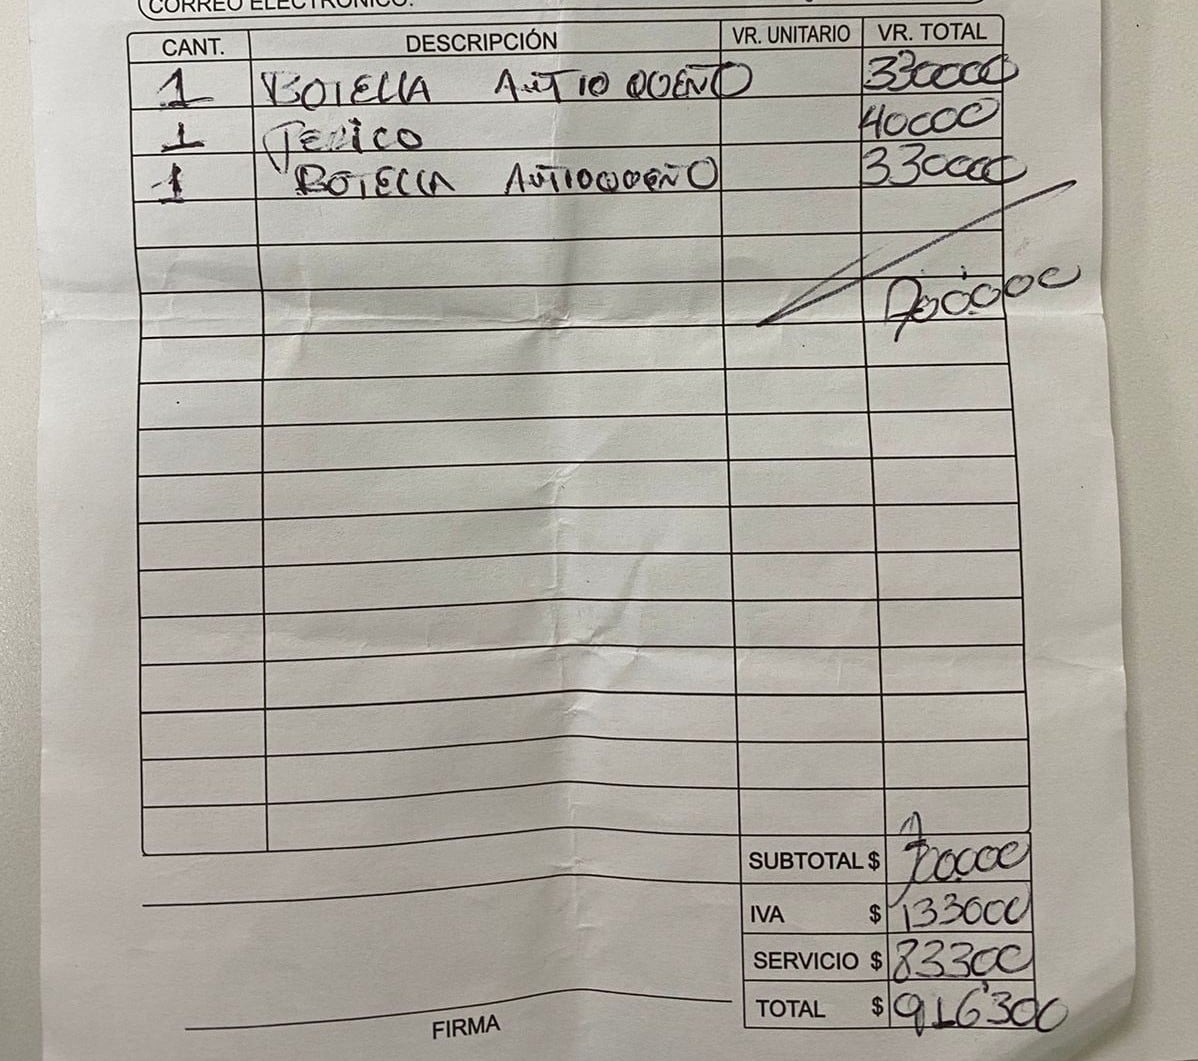 CORREO ELECTRÓNICO:
CANT. DESCRIPCIÓN VR. UNITARIO VR. TOTAL
1 BOTELLA ANTIOQUEÑO 330000
1 40000
1 BOTELLA ANTIOQUEÑO 330000
700.000
SUBTOTAL $ 700000
IVA $ 133000
SERVICIO $ 83300
TOTAL $ 916'300
FIRMA